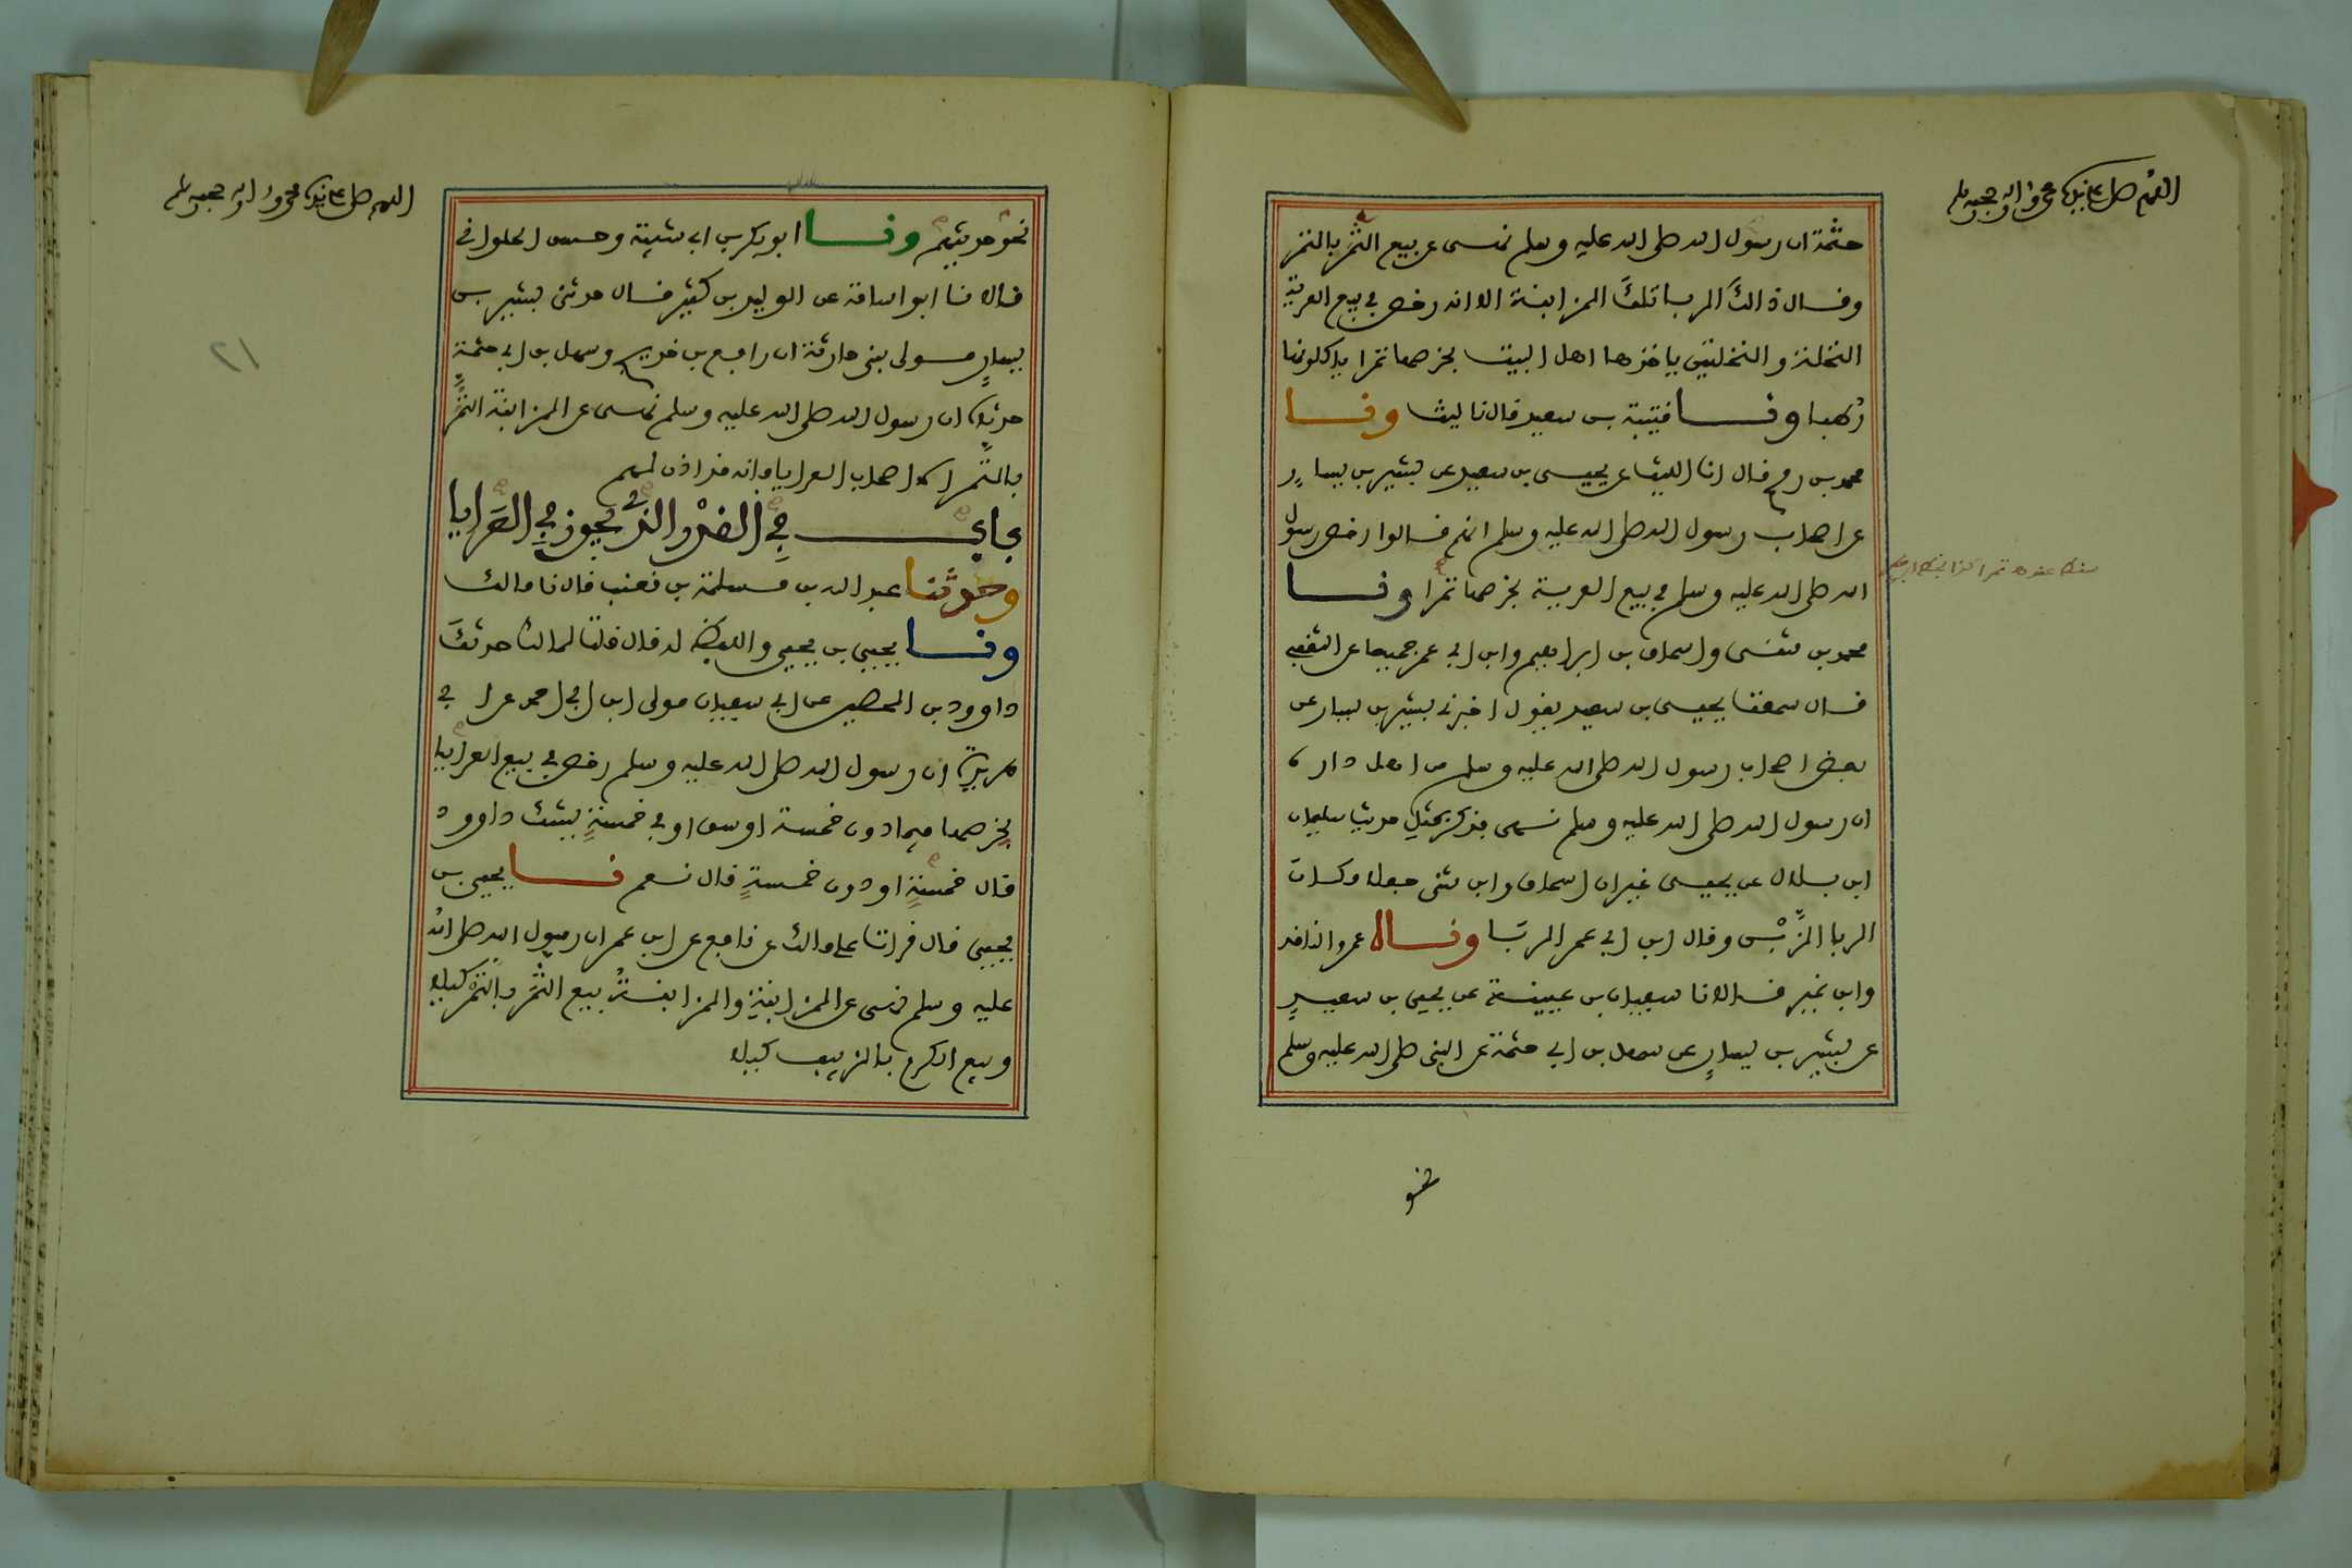 اللهم صل على نبيك محمد واله وصحبه وسلم
حثمة ان رسول الله صلى الله عليه وسلم نهى عن بيع الثمر بالتمر
وقال ذالك الربا تلك المزابنة الا انه رخص في بيع العرية
النخلة والنخلتين ياخذها اهل البيت بخرصها تمرا ياكلونها
رطبا ونا قتيبة بن سعيد قال نا ليث ونا
محمد بن رمح قال انا الليث عن يحيى بن سعيد عن بشير بن يسار
عن اصحاب رسول الله صلى الله عليه وسلم انهم قالوا رخص رسول
الله صلى الله عليه وسلم في بيع العرية بخرصها تمرا ونا
محمد بن مثنى واسحاق بن ابراهيم وابن ابي عمر جميعا عن الثقفي
قال سمعت يحيى بن سعيد يقول اخبرني بشير بن يسار عن
بعض اصحاب رسول الله صلى الله عليه وسلم من اهل داره
ان رسول الله صلى الله عليه وسلم نهى فذكر بمثل حديث سليمان
ابن بلال عن يحيى غير ان اسحاق وابن مثنى جعلا مكان
الربا الزبن وقال ابن ابي عمر الربا وناه عمرو الناقد
وابن نمير قالا نا سفيان بن عيينة عن يحيى بن سعيد
عن بشير بن يسار عن سهل بن ابي حثمة عن النبي صلى الله عليه وسلم
نحو
اللهم صل على نبيك محمد واله وصحبه وسلم
نحو حديثهم ونا ابو بكر بن ابي شيبة وحسن الحلواني
قالا نا ابو اسامة عن الوليد بن كثير قال حدثني بشير بن
يسار مولى بني حارثة ان رافع بن خديج وسهل بن ابي حثمة
حدثاه ان رسول الله صلى الله عليه وسلم نهى عن المزابنة الثمر
بالتمر الا اصحاب العرايا فانه قد اذن لهم
باب في القدر الذي يجوز في العرايا
وحدثنا عبد الله بن مسلمة بن قعنب قال نا مالك
ونا يحيى بن يحيى واللفظ له قال قلت لمالك حدثك
داوود بن الحصين عن ابي سفيان مولى ابن ابي احمد عن ا بي
هريرة ان رسول الله صلى الله عليه وسلم رخص في بيع العرايا
بخرصها فيما دون خمسة اوسق او في خمسة يشك داوود
قال خمسة او دون خمسة قال نعم نا يحيى بن
يحيى قال قرات على مالك عن نافع عن ابن عمر ان رسول الله صلى الله
عليه وسلم نهى عن المزابنة والمزابنة بيع الثمر بالتمر كيلا
وبيع الكرم بالزبيب كيلا
٢١